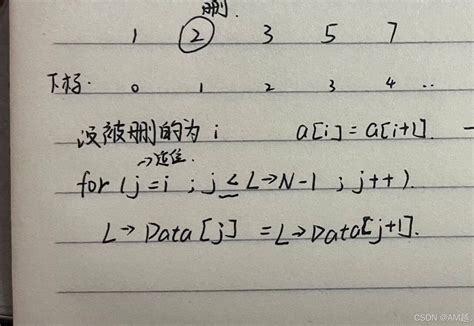 删
1 ② 3 5 7
下标. 0 1 2 3 4 ..
没被删的为 i a[i]=a[i+1].
for (j=i ; j≤L→N-1 ; j++).
L→Data[j] =L→Data[j+1].
CSDN @AM越